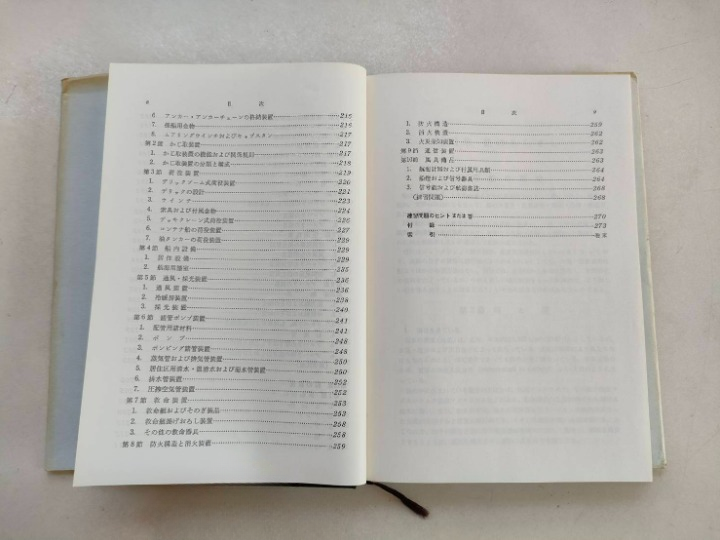 8 目次
6. アンカー・アンカーチェーンの格納装置 215
7. 係船用金物 216
8. ムアリングウインチおよびキャプスタン 217
第2節 かじ取装置 217
1. かじ取装置の機能および関係規則 217
2. かじ取装置の分類と構成 218
第3節 荷役装置 219
1. デリックブーム式荷役装置 220
2. デリックの設計 221
3. ウインチ 224
4. 索具および付属金物 224
5. デッキクレーン式荷役装置 226
6. コンテナ船の荷役装置 227
7. 油タンカーの荷役装置 229
第4節 船内設備 229
1. 居住設備 229
2. 235
第5節 通風・採光装置 236
1. 通風装置 236
2. 冷暖房装置 238
3. 採光装置 240
第6節 諸管ポンプ装置 241
1. 配管用諸材料 241
2. ポンプ 245
3. ポンピング諸管装置 248
4. 蒸気管および排気管装置 250
5. 居住区用清水・温清水および海水管装置 250
6. 排水管装置 252
7. 圧搾空気管装置 252
第7節 救命装置 253
1. 救命艇およびそのぎ装品 253
2. 救命艇揚げおろし装置 258
3. その他の救命器具 258
第8節 防火構造と消火装置 259
目次 9
1. 防火構造 259
2. 消火装置 262
3. 火災探知装置 262
第9節 263
第10節 263
1. 263
2. 船燈および信号器具 264
3. 268
(練習問題) 268
練習問題のヒントまたは答 270
付録 273
索引 巻末